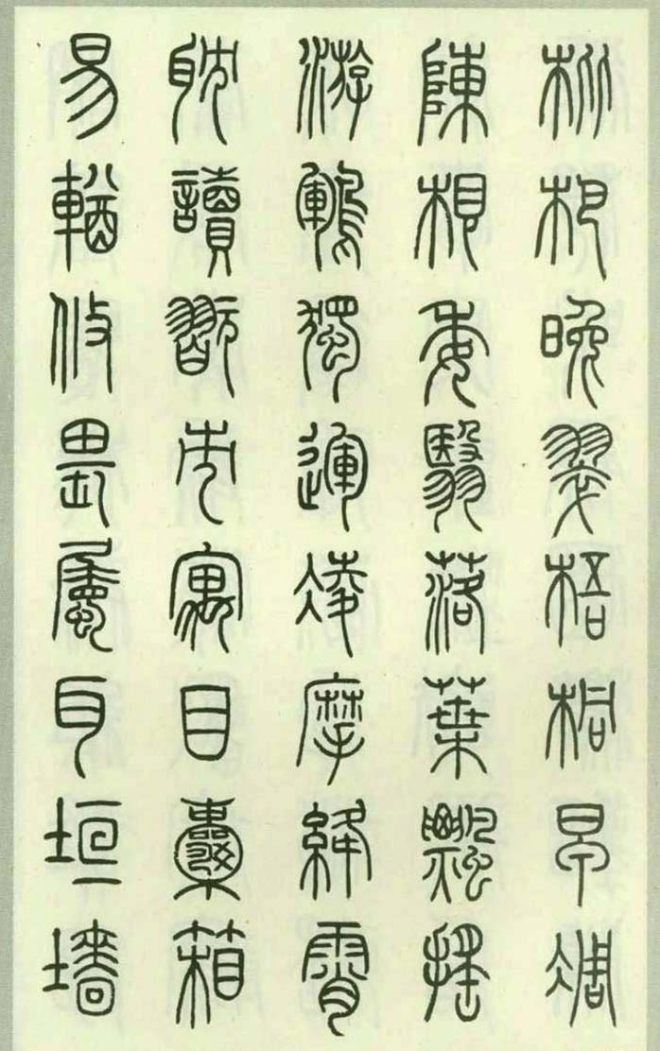 枇杷晚翠梧桐早凋
陳根委翳落葉飄搖
游鵾獨運凌摩絳霄
耽讀翫市寓目囊箱
易輶攸畏屬耳垣墻